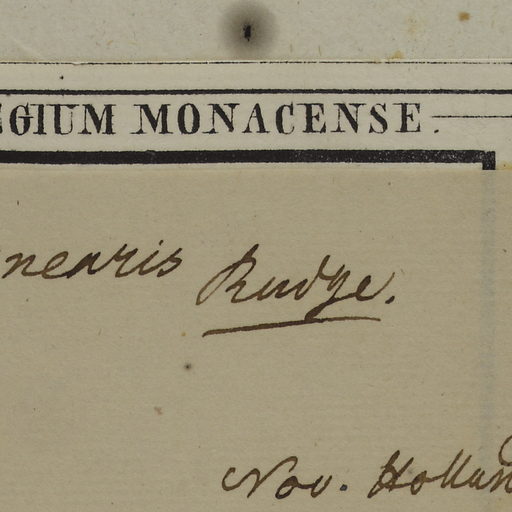 EGIUM MONACENSE.
nearis Rudge.
Nov. Hollan